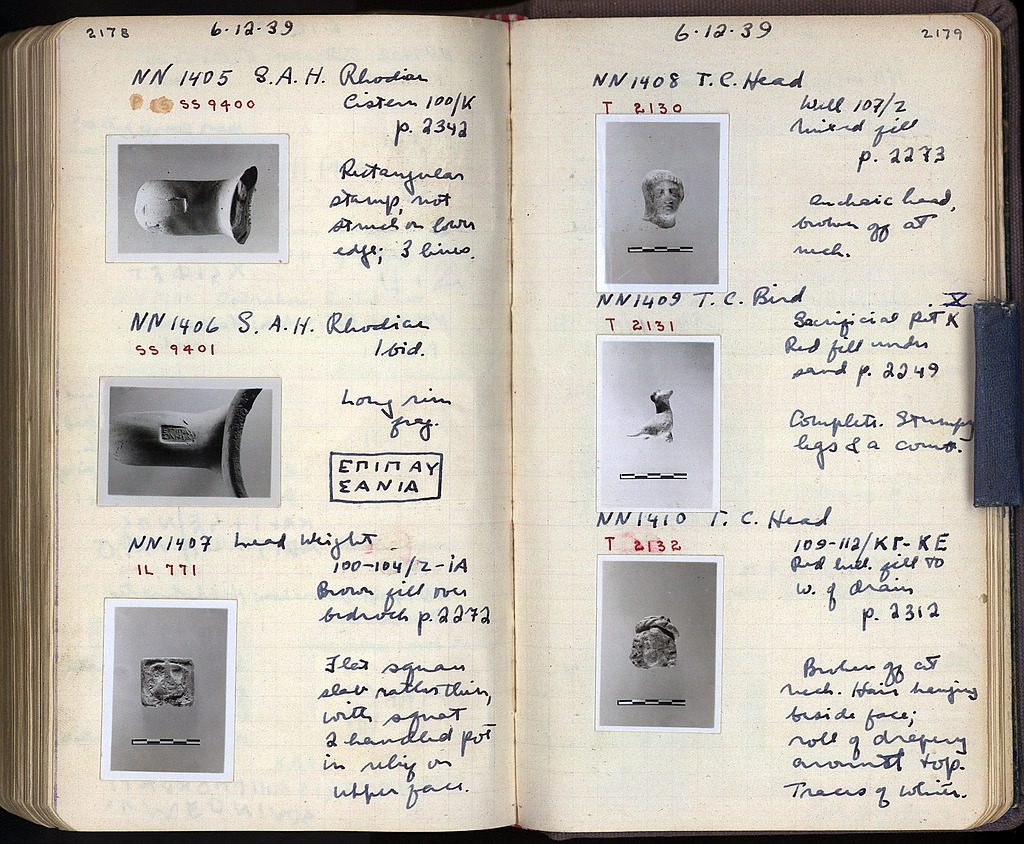 2178
6-12-39
NN 1405 S.A.H. Rhodian
SS 9400
Cistern 100/K
p. 2342
Rectangular
stamp, not
struck on lower
edge; 3 lines.
NN 1406 S.A.H. Rhodian
SS 9401
Ibid.
Long rim
frag.
ΕΠΙΠΑΥ
ΣΑΝΙΑ
NN 1407 Lead Weight
IL 771
100-104/Z-IA
Brown fill over
bedrock p. 2272
Flat square
slab rather thin,
with squat
2 handled pot
in relief on
upper face.
6-12-39
2179
NN 1408 T.C. Head
T 2130
Well 107/Z
Mixed fill
p. 2273
archaic head,
broken off at
neck.
NN 1409 T.C. Bird
X
T 2131
Sacrificial Pit K
Red fill under
sand p. 2249
Complete. Stumpy
legs & a comb.
NN 1410 T.C. Head
T 2132
109-112/ΚΓ-ΚΕ
Red fill to
W. of drain
p. 2312
Broken off at
neck. Hair hanging
beside face;
roll of drapery
around top.
Traces of white.